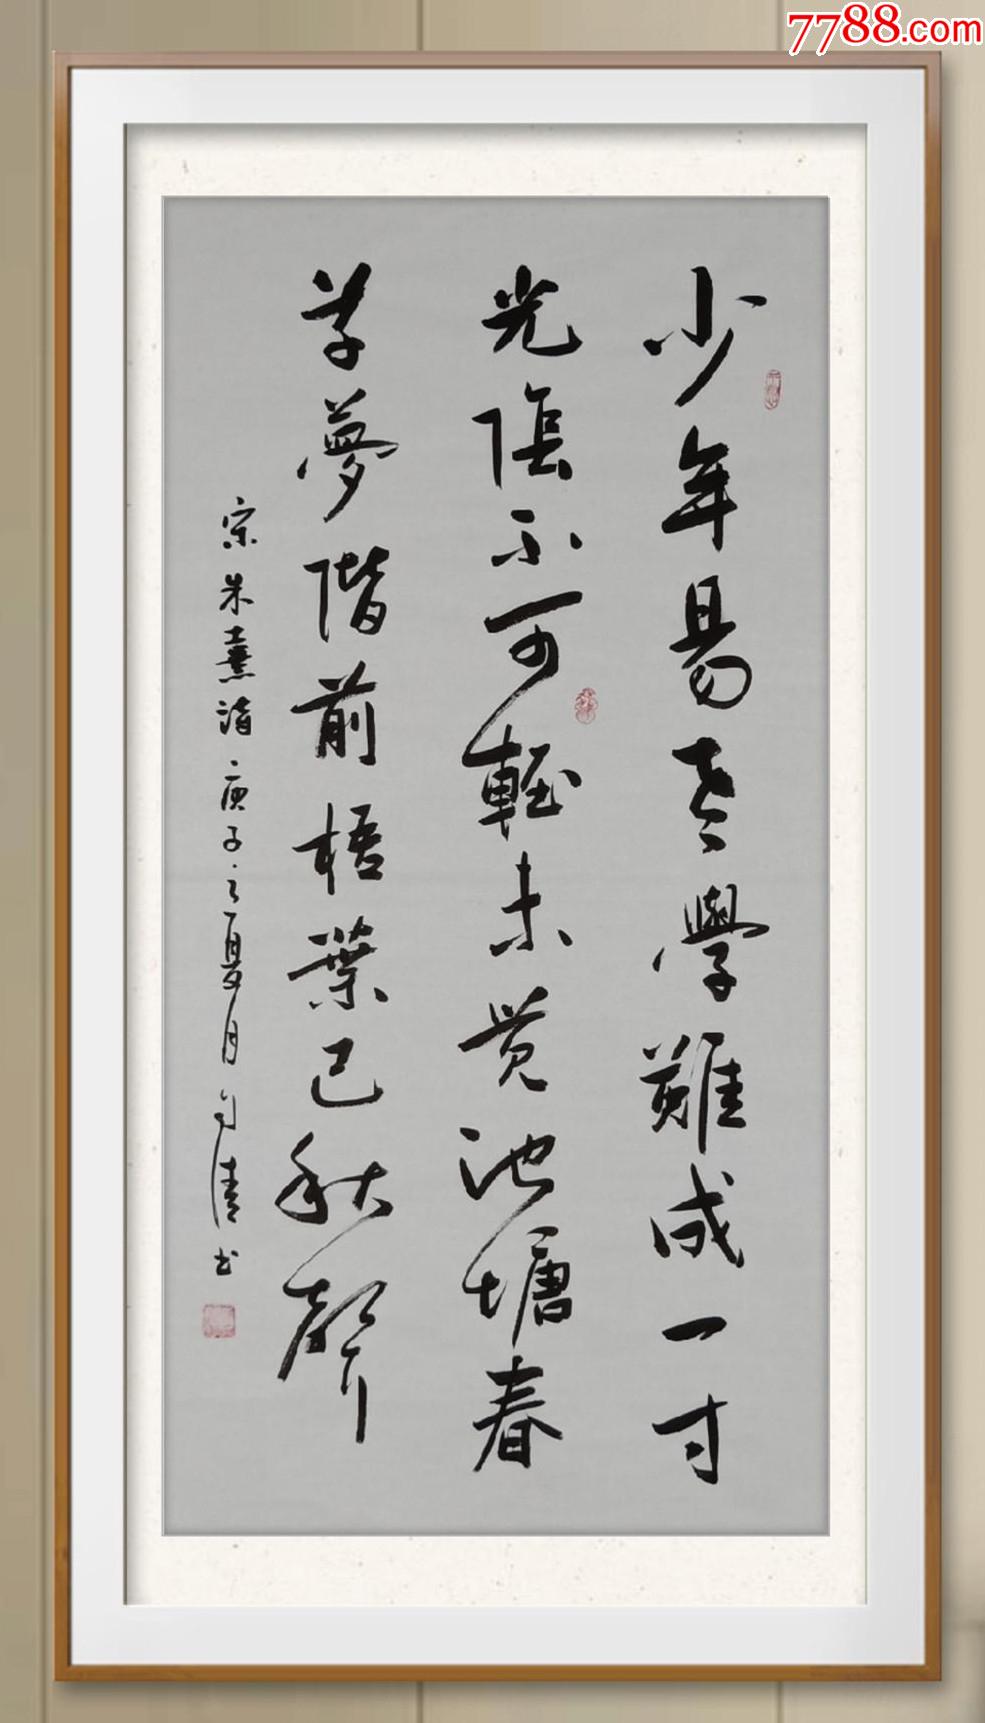 7788.com
少年易老學難成一寸
光陰不可輕未觉池塘春
草夢階前梧葉已秋聲
宋朱熹詩庚子之夏月自清书